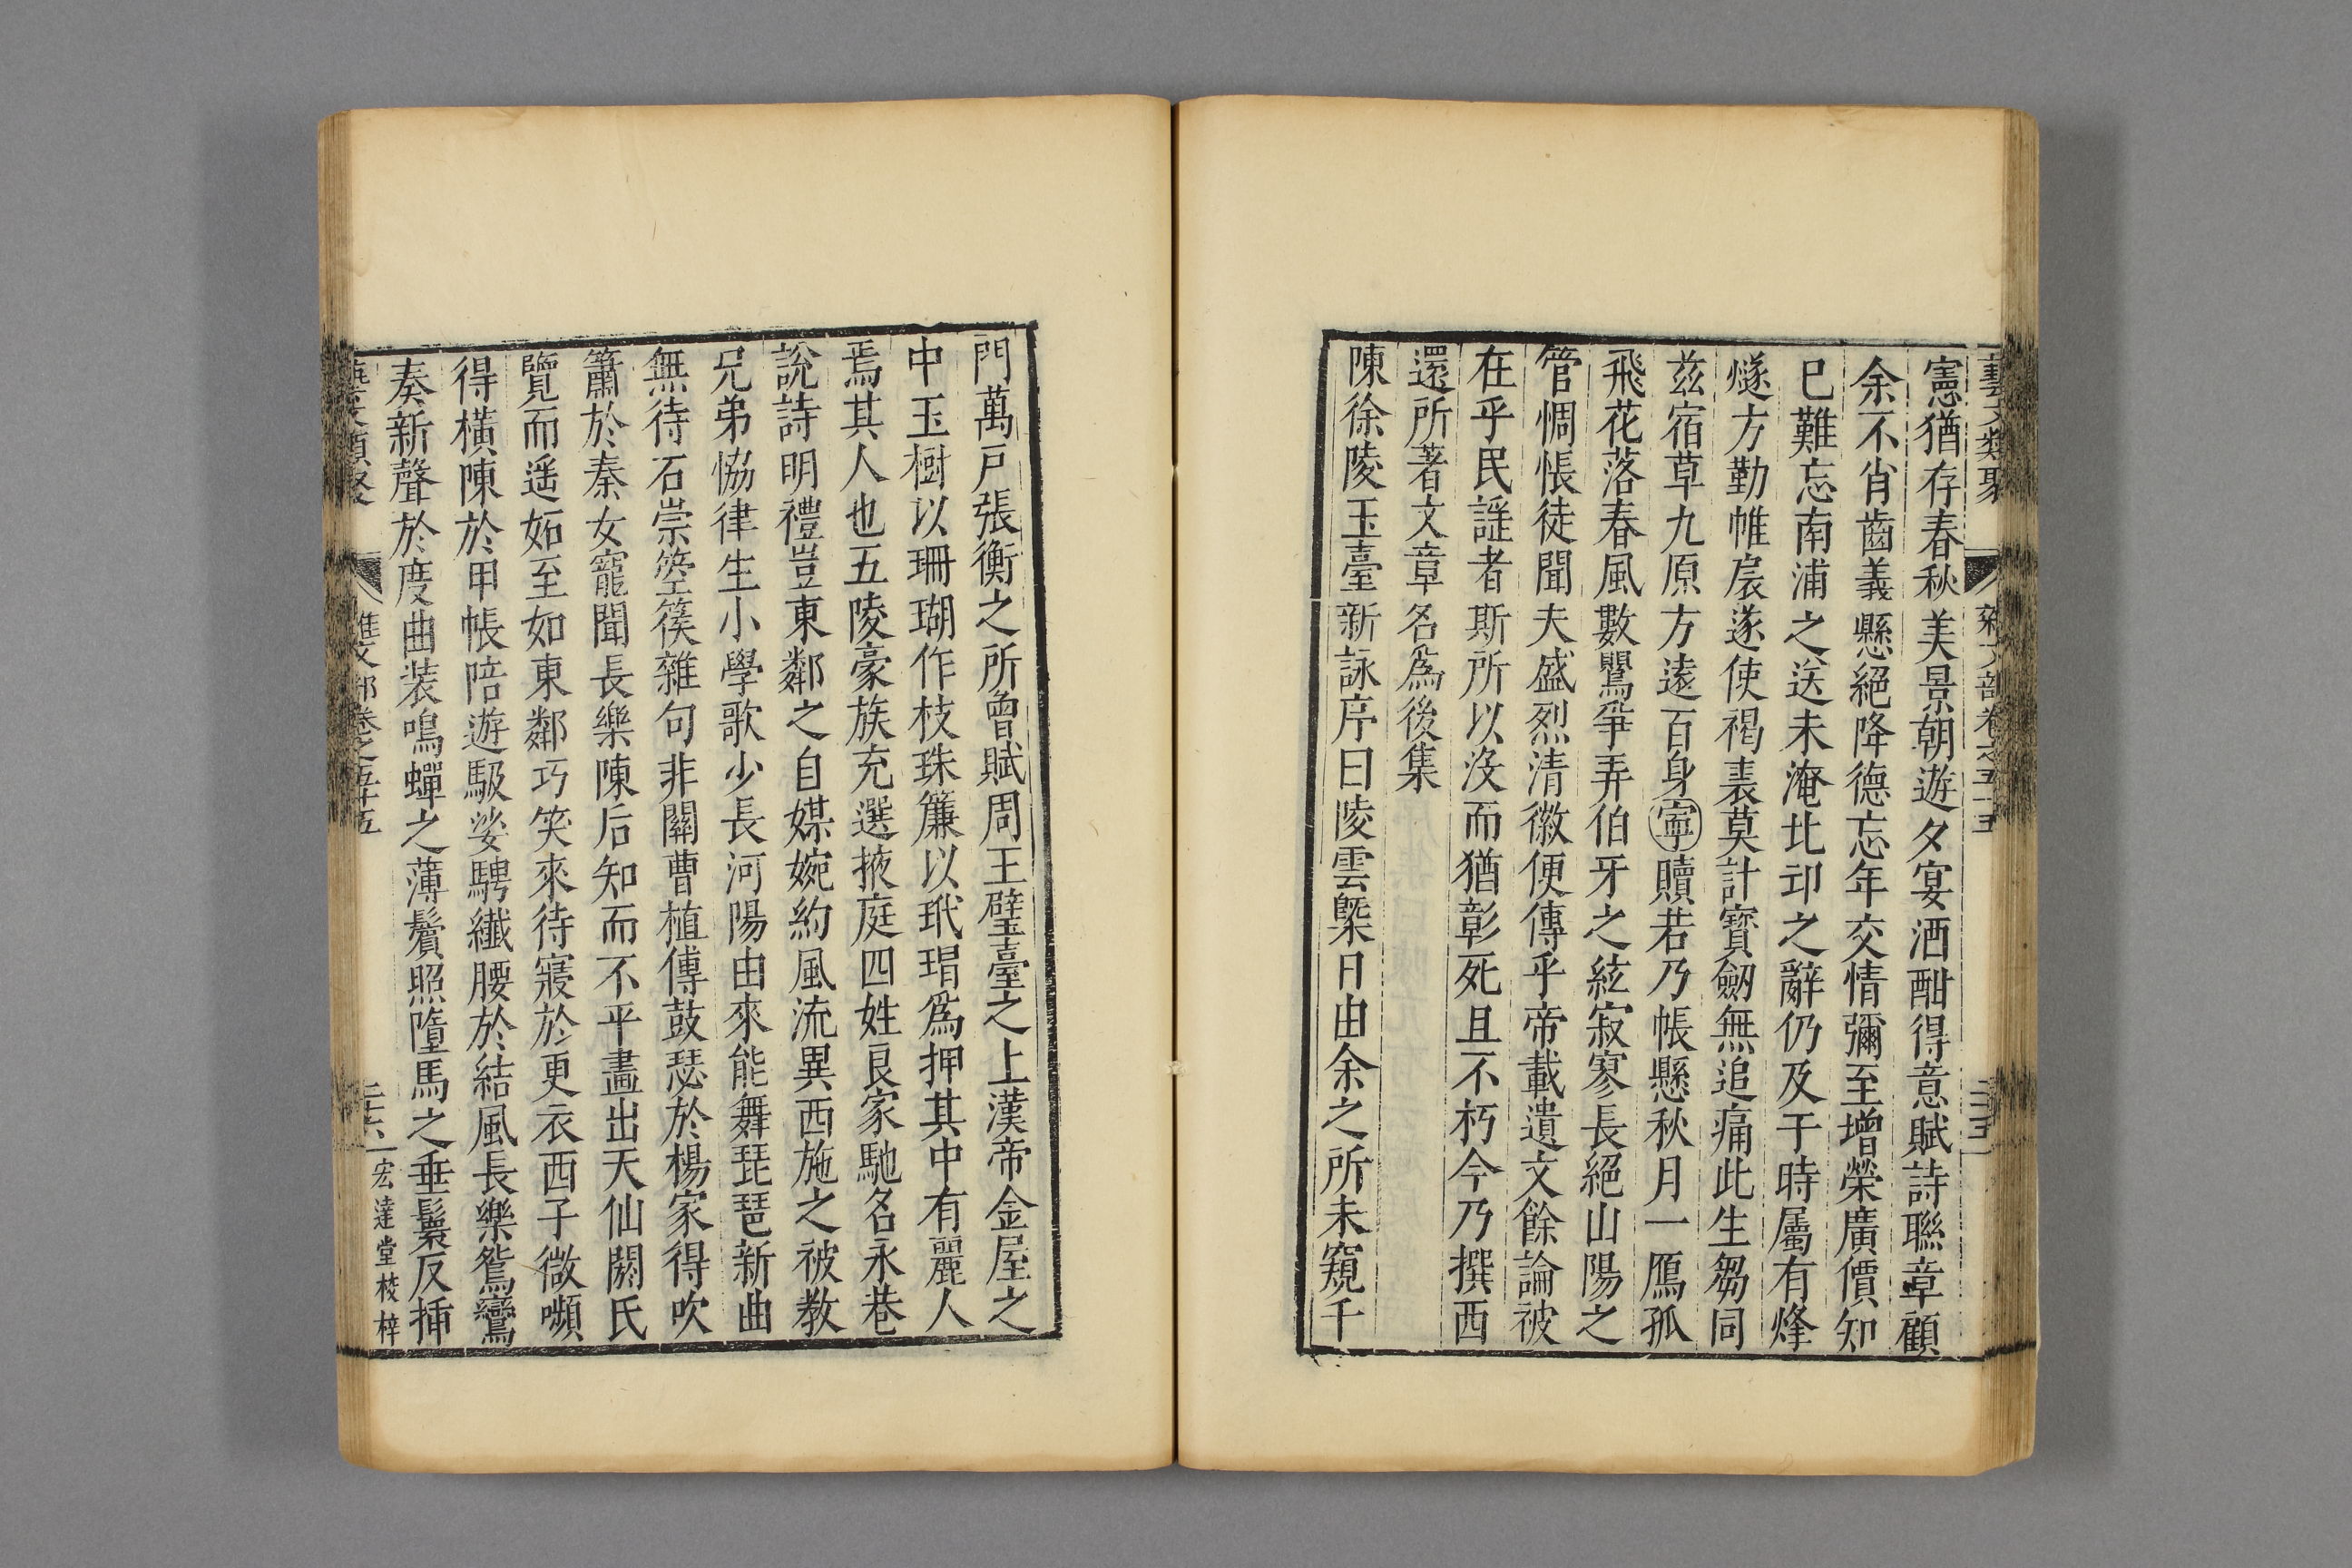 藝文類聚 雜文部卷之五十五 二十五
憲猶存春秋美景朝遊夕宴洒酣得意賦詩聯章顧
余不肖齒義懸絕降德忘年交情彌至增榮廣價知
已難忘南浦之送未淹北卭之辭仍及于時屬有烽
燧方勤帷扆遂使褐裘莫計寳劒無追痛此生芻同
兹宿草九原方遠百身寧贖若乃帳懸秋月一鴈孤
飛花落春風數鸎爭弄伯牙之絃寂寥長絕山陽之
管惆悵徒聞夫盛烈清徽便傳乎帝載遺文餘論被
在乎民謡者斯所以沒而猶彰死且不朽今乃撰西
還所著文章名爲後集
陳徐陵玉臺新詠序曰陵雲槩日由余之所未窺千
門萬戸張衡之所曾賦周王璧臺之上漢帝金屋之
中玉樹以珊瑚作枝珠簾以玳瑁爲押其中有麗人
焉其人也五陵豪族充選掖庭四姓良家馳名永巷
說詩明禮豈東鄰之自媒婉約風流異西施之被教
兄弟恊律生小學歌少長河陽由來能舞琵琶新曲
無待石崇箜篌雜句非關曹植傳鼓瑟於楊家得吹
簫於秦女寵聞長樂陳后知而不平畫出天仙閼氏
覽而遥妬至如東鄰巧笑來待寢於更衣西子微嚬
得橫陳於甲帳陪遊馺娑騁纖腰於結風長樂鴛鸞
奏新聲於度曲裝鳴蟬之薄鬢照墮馬之垂鬟反揷
藝文類聚 雜文部卷之五十五 二十六 宏達堂校梓